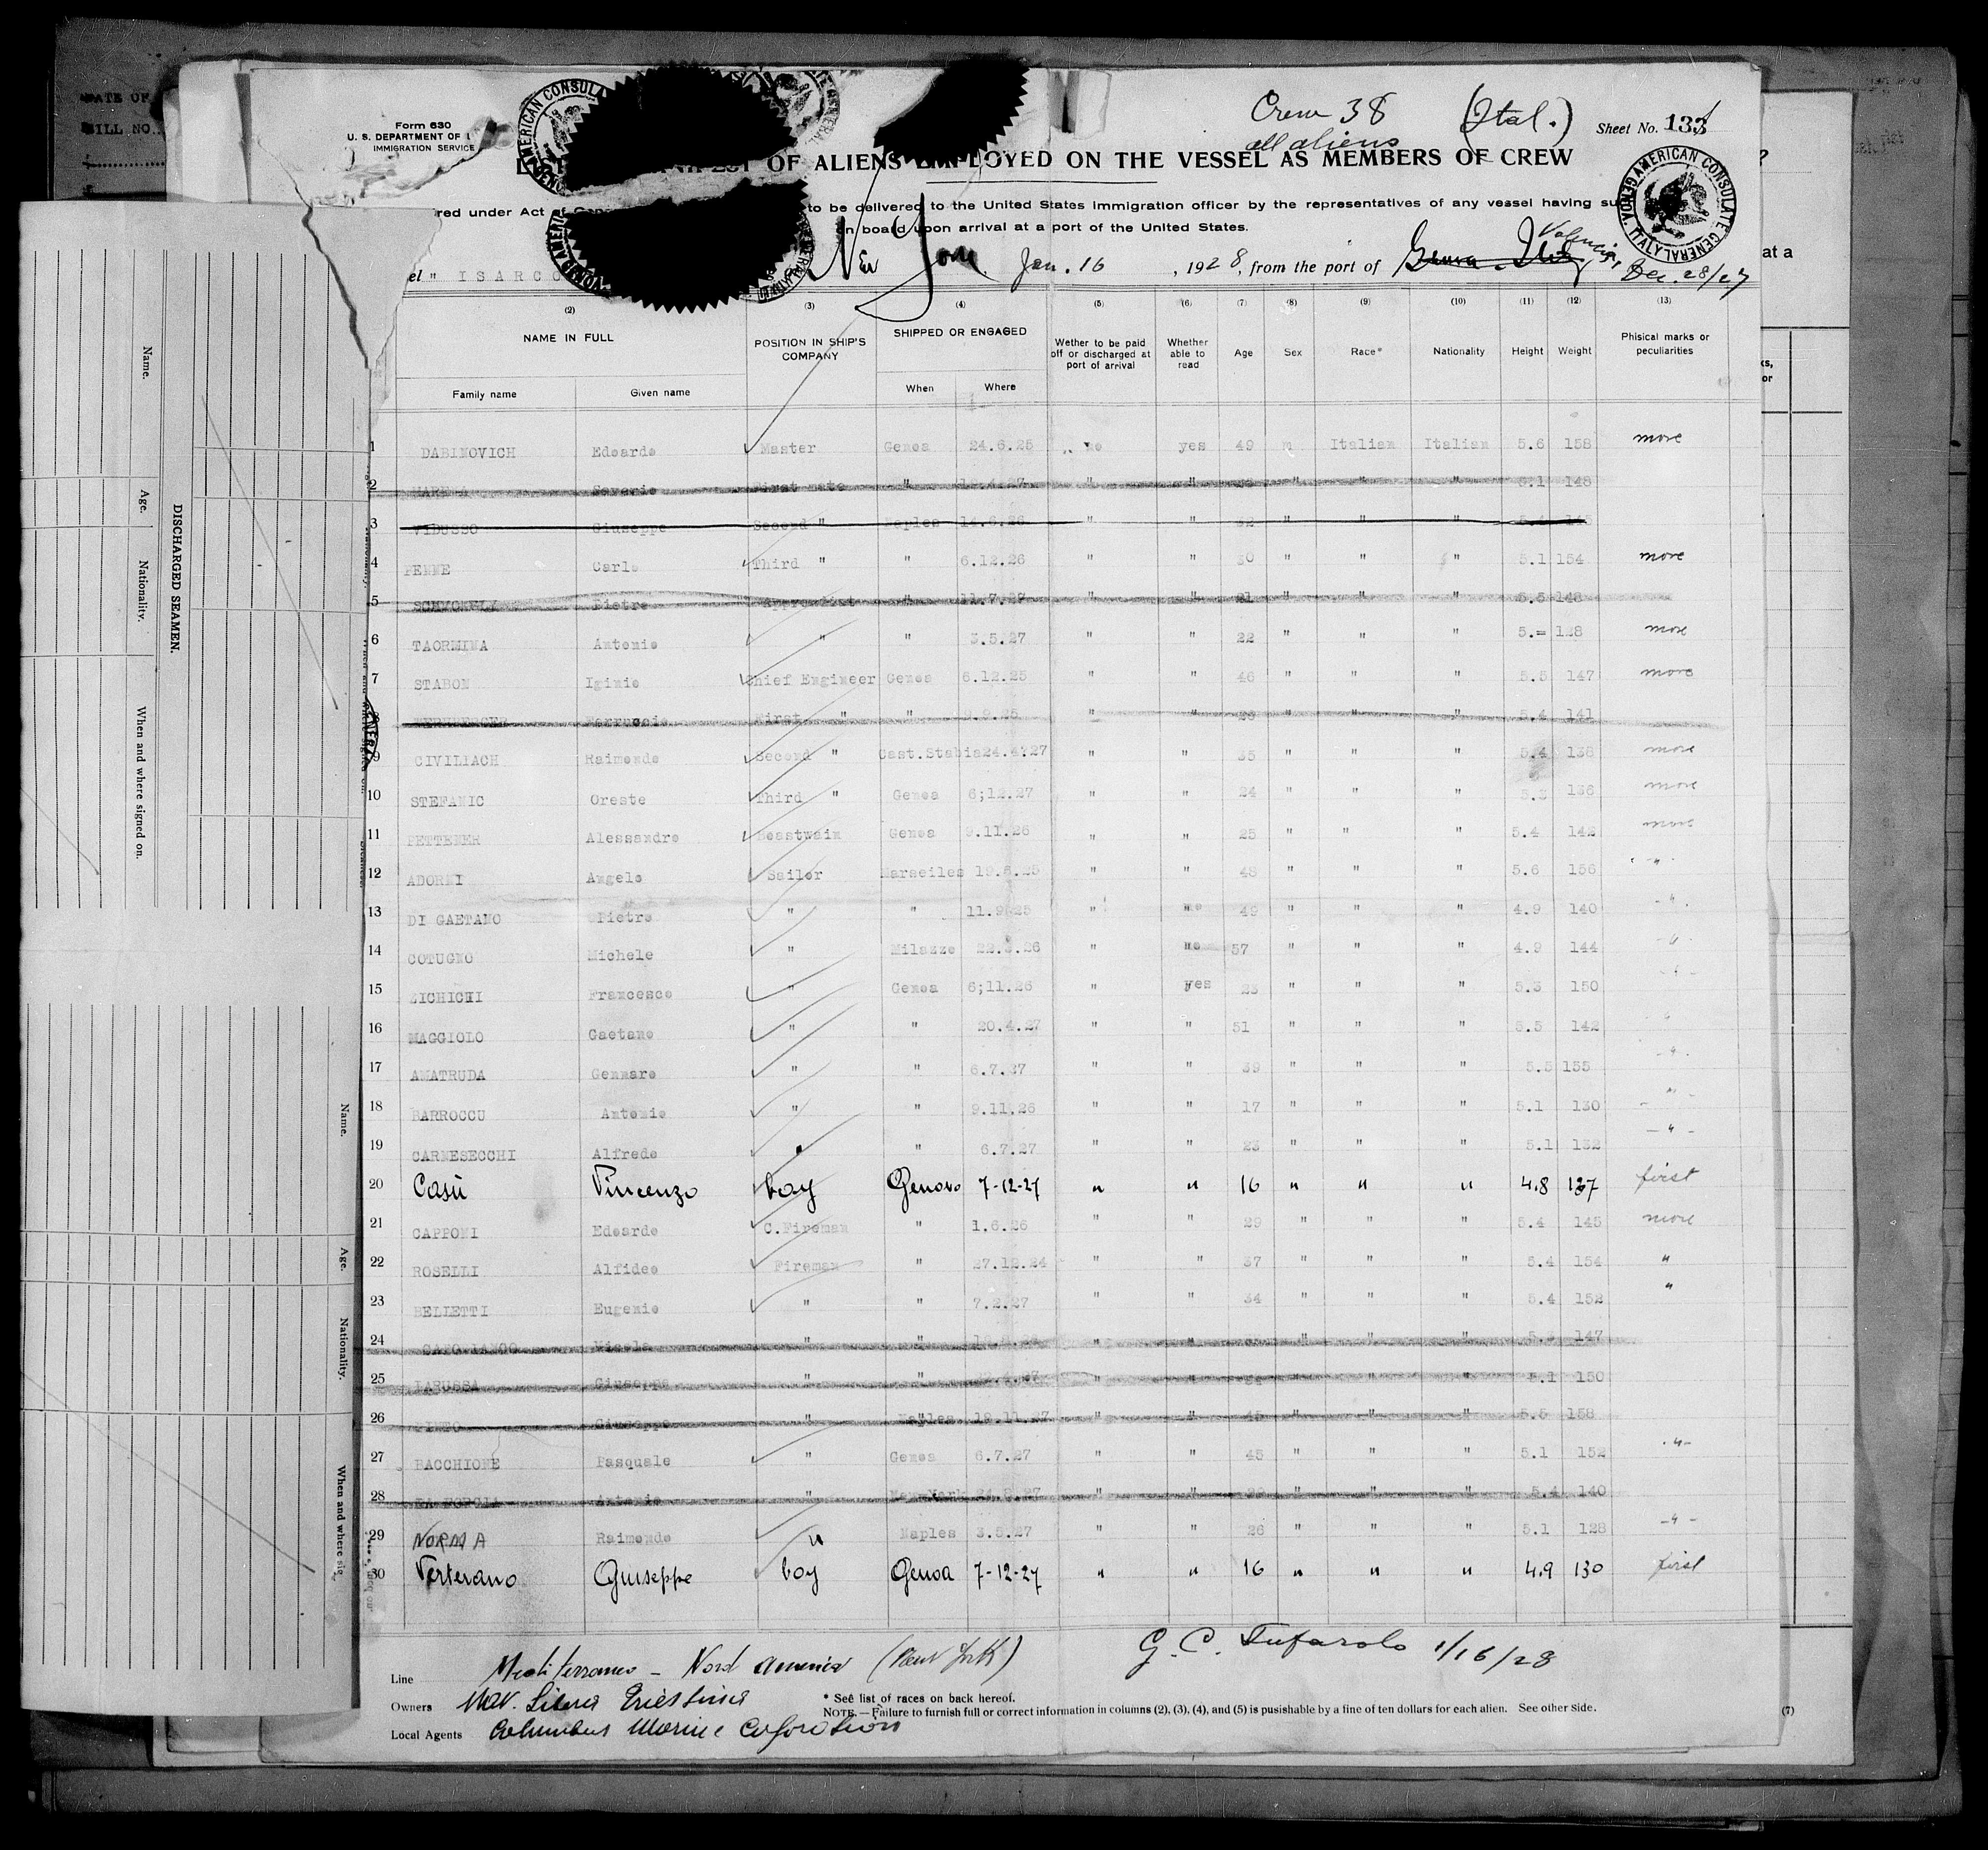 Crew 38 (Ital.) Sheet No. 133
all aliens
Form 630
U. S. DEPARTMENT OF
IMMIGRATION SERVICE
OF ALIENS EMPLOYED ON THE VESSEL AS MEMBERS OF CREW
AMERICAN CONSULATE GENERAL
to be delivered to the United States immigration officer by the representatives of any vessel having
on board upon arrival at a port of the United States.
" ISARCO New York Jan. 16, 1928, from the port of Valencia, Dec. 28/27
(2) (3) (4) (5) (6) (7) (8) (9) (10) (11) (12) (13)
NAME IN FULL POSITION IN SHIP'S COMPANY SHIPPED OR ENGAGED Wether to be paid off or discharged at port of arrival Whether able to read Age Sex Race* Nationality Height Weight Phisical marks or peculiarities
Family name Given name When Where
1 DABINOVICH Edoardo Master Genoa 24.6.25 no yes 49 m Italian Italian 5.6 158 more
2 Saverio First mate " " " " " " 148
3 VIDUSSO Giuseppe Second " Naples 14.6.26 " " 32 " " "
4 PENNE Carlo Third " " 6.12.26 " " 30 " " " 5.1 154 more
5 Pietro " 11.7.27 " " 21 " " " 5.5 148
6 TAORMINA Antonio " " 3.5.27 " " 22 " " " 5.= 128 more
7 STABON Iginio Chief Engineer Genoa 6.12.25 " " 46 " " " 5.5 147 more
8 Ferruccio First " " 9.9.25 " " " " " 5.4 141
9 CIVILIACH Raimondo Second " Cast.Stabia 24.4.27 " " 35 " " " 5.4 138 more
10 STEFANIC Oreste Third " Genoa 6;12.27 " " 24 " " " 5.3 136 more
11 PETTENER Alessandro Boastwain Genoa 9.11.26 " " 25 " " " 5.4 142 more
12 ADORNI Angelo Sailor Marseiles 19.8.25 " " 48 " " " 5.6 156 "
13 DI GAETANO Pietro " " 11.9.25 " no 49 " " " 4.9 140 "
14 COTUGNO Michele " Milazzo 22.3.26 " no 57 " " " 4.9 144 "
15 ZICHICHI Francesco " Genoa 6;11.26 " yes 23 " " " 5.3 150 "
16 MAGGIOLO Gaetano " " 20.4.27 " " 51 " " " 5.5 142 "
17 AMATRUDA Gennaro " " 6.7.27 " " 39 " " " 5.5 155 "
18 BARROCCU Antonio " " 9.11.26 " " 17 " " " 5.1 130 "
19 CARNESECCHI Alfredo " " 6.7.27 " " 23 " " " 5.1 132 "
20 Casù Vincenzo boy Genova 7-12-27 " " 16 " " " 4.8 127 first
21 CAPPONI Edoardo C.Fireman " 1.6.26 " " 29 " " " 5.4 145 more
22 ROSELLI Alfideo Fireman " 27.12.24 " " 37 " " " 5.4 154 "
23 BELLETTI Eugenio " " 7.2.27 " " 34 " " " 5.4 152 "
24 Nicola " " " " " " " 147
25 LARUSSA Giuseppe " " " " " " " 5.1 150
26 PINTO Giuseppe " Naples 18.11.27 " " 45 " " " 5.5 158
27 BACCHIONE Pasquale " Genoa 6.7.27 " " 45 " " " 5.1 152 "
28 Antonio " New York 24.8.27 " " " " " 5.4 140
29 NORMA Raimondo " Naples 3.5.27 " " 26 " " " 5.1 128 "
30 Verterano Giuseppe boy Genoa 7-12-27 " " 16 " " " 4.9 130 first
G. C. Tufarolo 1/16/28
Line Mediterraneo - Nord America (New York)
Owners Nav. Libera Triestina
Local Agents Columbus Marine Corporation
* See list of races on back hereof.
NOTE. — Failure to furnish full or correct information in columns (2), (3), (4), and (5) is pusishable by a fine of ten dollars for each alien. See other side.
(7)
DISCHARGED SEAMEN.
Name. Age. Nationality. When and where signed on.
Name. Age. Nationality. When and where
at a